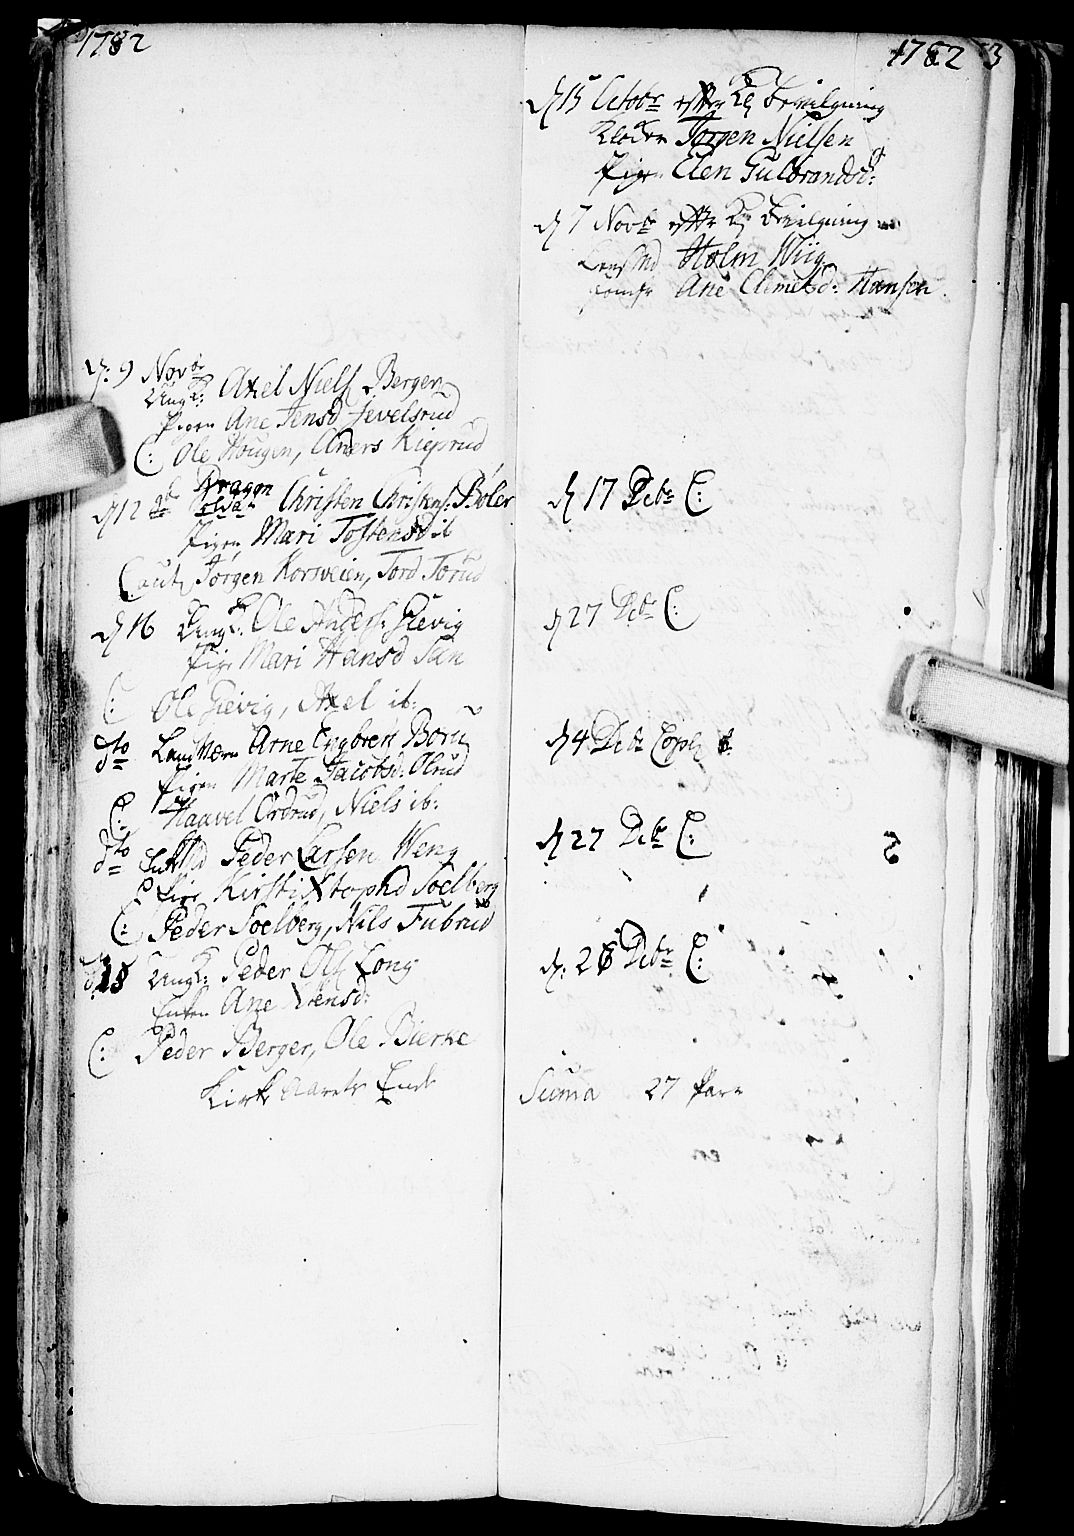 1782
d: 9 Novbr
UngK: Axel Niels Bergen
Pigen Ane Jensd Jevelsrud
C: Ole Hougen, Aners Kiepsrud
d 12 Dragon Christen Christens: Bøler
Pigen Mari Tostensd ib
Caut Jørgen Korsveien, Tord Torud
d 16 UngK: Ole Anders: Gievig
Pige Mari Hansd San
C: Ole Gievig, Axel ib:
dto Landværn Arne Engbren Born
Pigen Marte Jacobsd: Olrud
C: Haavel Ordrud, Niels ib:
dto Enkmd Peder Larsen Weng
Pige Kirsti Xtophd Soelberg
C: Peder Soelberg, Nils Fubrud
d: 18 UngK: Peder Ols Long
Enken Ane Jensd:
C: Peder Berger, Ole Bierke
Kirke Aarets Ende
1782 3
d 15 Octobr efter Kg bevilgning
Klocker Jørgen Nielsen
Pige Elen Gulbrandsd:
d 7 Novbr efter Kg bevilgning
Lensmd Holm Wiig
Jomfr Ane Clemetsd: Hansen
d 17 Decbr C:
d 27 Decbr C:
d 4 Decbr Copl
d 27 Decbr C:
d: 26 Decbr C:
Suma 27 Par